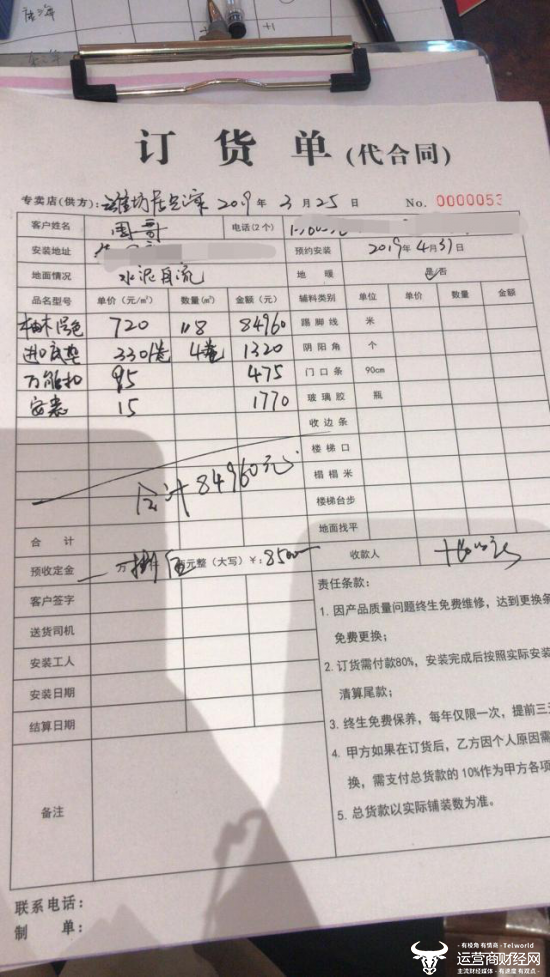 订货单(代合同)
专卖店(供方): 2019年3月25日 No. 0000053
客户姓名 周哥 电话(2个)
安装地址 预约安装 2019年4月31日
地面情况 水泥自流 地暖 是否
品名型号 单价(元/㎡) 数量(㎡) 金额(元) 辅料类别 单位 单价 数量 金额
柚木 色 720 118 84960 踢脚线 米
进口底垫 330/卷 4卷 1320 阴阳角 个
万能扣 95 475 门口条 90cm
安装 15 1770 玻璃胶 瓶
收边条
楼梯口
合计84960元 榻榻米
楼梯台步
合计 地面找平
预收定金 元整(大写)¥: 收款人
客户签字
送货司机
安装工人
安装日期
结算日期
备注
责任条款:
1. 因产品质量问题终生免费维修,达到更换条
免费更换;
2. 订货需付款80%,安装完成后按照实际安装
清算尾款;
3. 终生免费保养,每年仅限一次,提前三
4. 甲方如果在订货后,乙方因个人原因需
换,需支付总货款的10%作为甲方各项
5. 总货款以实际铺装数为准。
联系电话:
制 单:
·有棱角 有情商· Telworld
运营商财经网
主流财经媒体·有速度 有观点